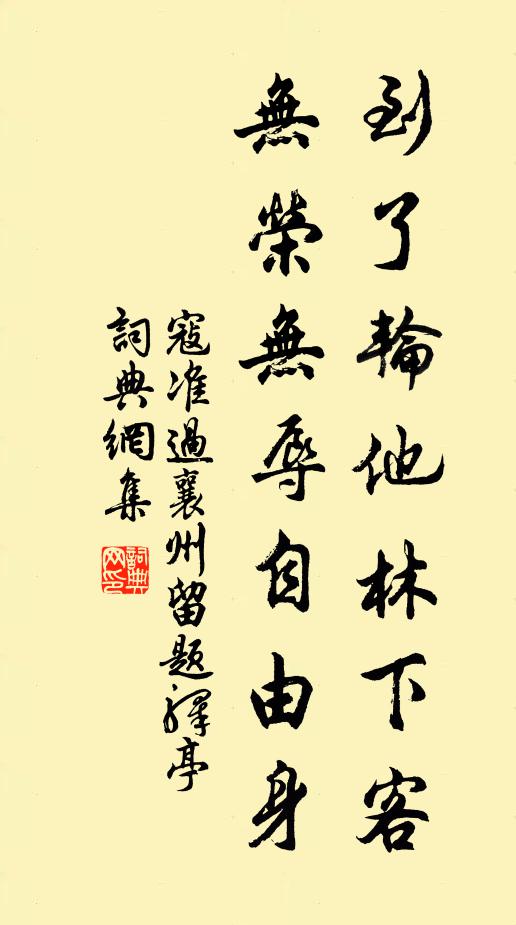 到了輪他林下客
無榮無辱自由身
寇准過襄州留題驛亭
詞典網集
詞典网印